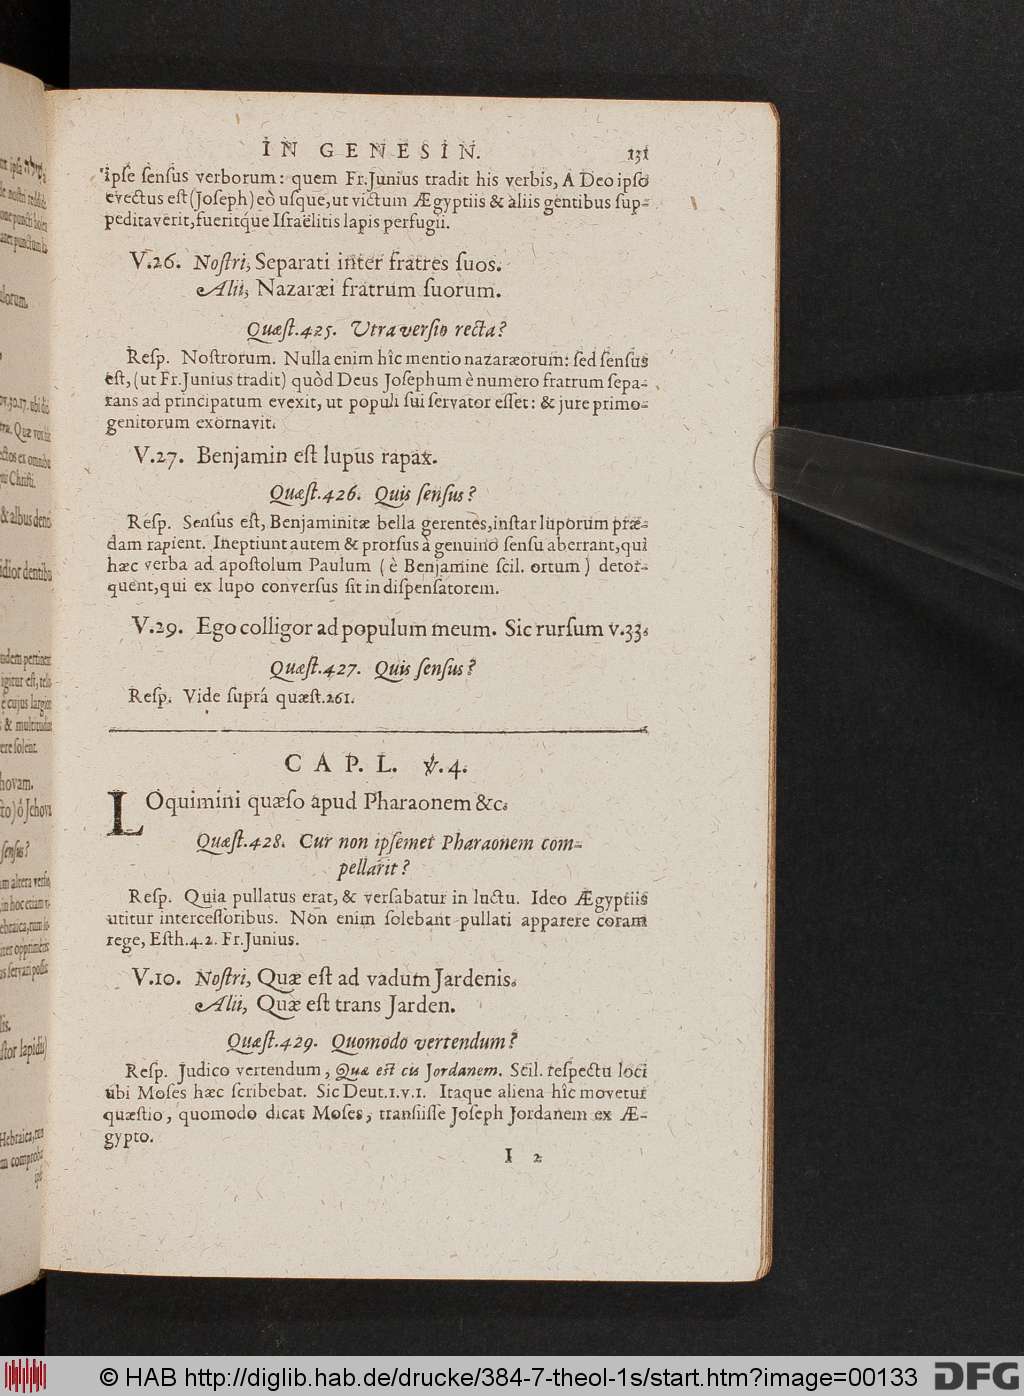 IN GENESIN. 131
ipſe ſenſus verborum: quem Fr.Junius tradit his verbis, A Deo ipſo
evectus eſt (Joſeph) eò uſque, ut victum Ægyptiis & aliis gentibus ſup-
peditaverit, fueritq́ue Iſraëlitis lapis perfugii.
V.26. Noſtri, Separati inter fratres ſuos.
Alii, Nazaræi fratrum ſuorum.
Quæſt.425. Utra verſio recta?
Reſp. Noſtrorum. Nulla enim hîc mentio nazaræorum: ſed ſenſus
eſt, (ut Fr.Junius tradit) quòd Deus Joſephum è numero fratrum ſepa-
rans ad principatum evexit, ut populi ſui ſervator eſſet: & jure primo-
genitorum exornavit.
V.27. Benjamin eſt lupus rapax.
Quæſt.426. Quis ſenſus?
Reſp. Senſus eſt, Benjaminitæ bella gerentes, inſtar luporum præ-
dam rapient. Ineptiunt autem & prorſus à genuino ſenſu aberrant, qui
hæc verba ad apoſtolum Paulum (è Benjamine ſcil. ortum) detor-
quent, qui ex lupo converſus ſit in diſpenſatorem.
V.29. Ego colligor ad populum meum. Sic rurſum v.33.
Quæſt.427. Quis ſenſus?
Reſp. Vide ſuprá quæſt.261.
CAP. L. v.4.
LOquimini quæſo apud Pharaonem &c.
Quæſt.428. Cur non ipſemet Pharaonem com-
pellarit?
Reſp. Quia pullatus erat, & verſabatur in luctu. Ideo Ægyptiis
utitur interceſſoribus. Non enim ſolebant pullati apparere coram
rege, Eſth.4.2. Fr.Junius.
V.10. Noſtri, Quæ eſt ad vadum Jardenis.
Alii, Quæ eſt trans Jarden.
Quæſt.429. Quomodo vertendum?
Reſp. Judico vertendum, Quæ eſt cis Jordanem. Scil. reſpectu loci
ubi Moſes hæc ſcribebat. Sic Deut.1.v.1. Itaque aliena hîc movetur
quæſtio, quomodo dicat Moſes, tranſiiſſe Joſeph Jordanem ex Æ-
gypto.
I 2
© HAB http://diglib.hab.de/drucke/384-7-theol-1s/start.htm?image=00133
DFG